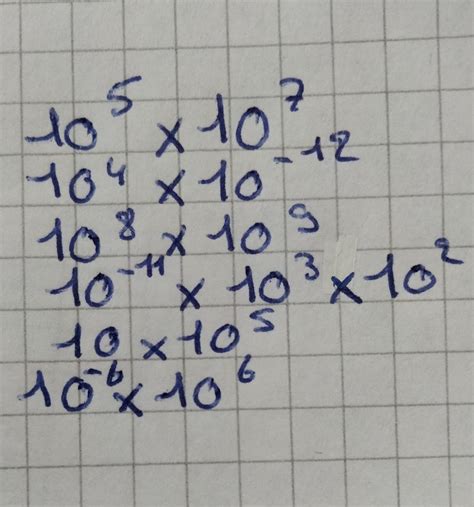 10⁵ × 10⁷
10⁴ × 10⁻¹²
10⁸ × 10⁹
10⁻¹¹ × 10³ × 10²
10 × 10⁵
10⁻⁶ × 10⁶